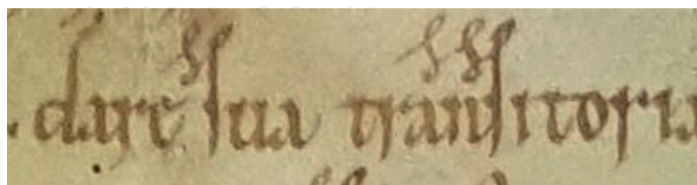 . dare sua transitoria